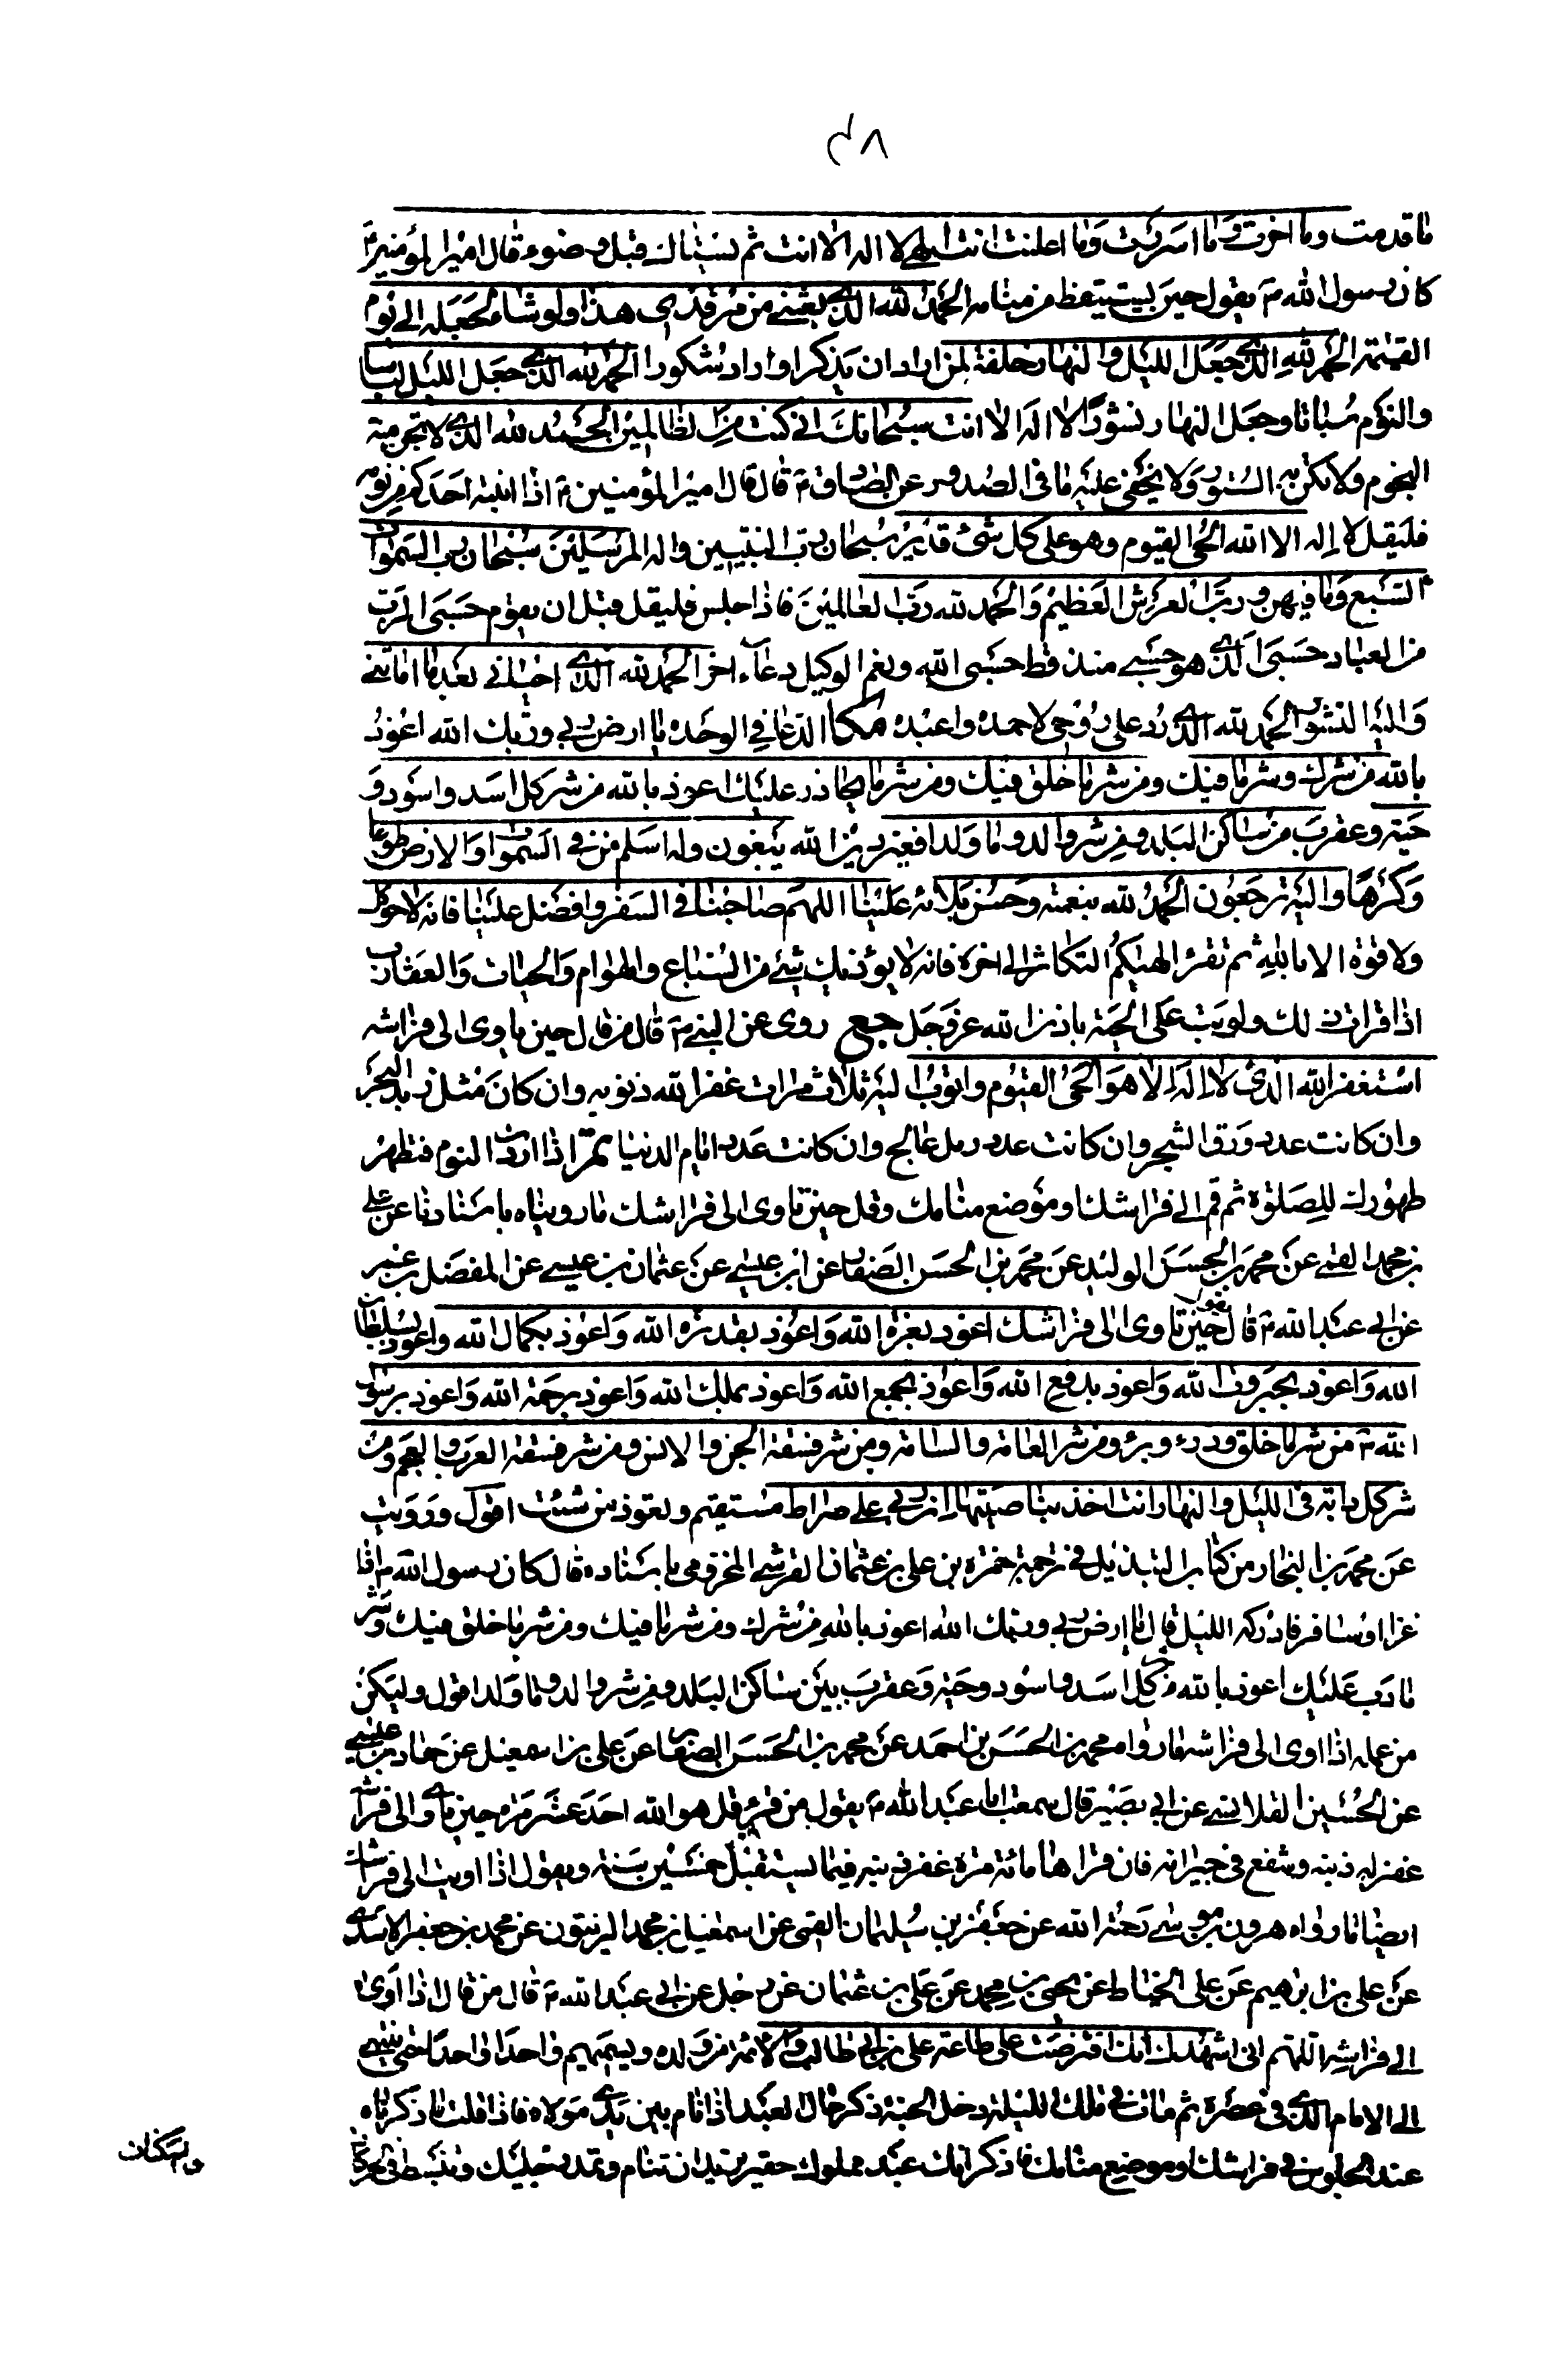 ٤٨
ما قدمت وما اخرت وما اسررت وما اعلنت انت الهي لا اله الا انت ثم تستاك قبل وضوء قال امير المؤمنين ع
كان رسول الله ص يقول حين يستيقظ من منامه الحمد لله الذي بعثني من مرقدي هذا ولو شاء لجعله الى يوم
القيمة الحمد لله الذي جعل الليل والنهار خلفة لمن اراد ان يذكر او اراد شكورا الحمد لله الذي جعل الليل لباسا
والنوم سباتا وجعل النهار نشورا لا اله الا انت سبحانك اني كنت من الظالمين الحمد لله الذي لا تجن منه
النجوم ولا تكن منه الستور ولا يخفى عليه ما في الصدور عن الصادق ع قال قال امير المؤمنين ع اذا انتبه احدكم من نومه
فليقل لا اله الا الله الحي القيوم وهو على كل شئ قدير سبحان رب النبيين واله المرسلين سبحان رب السموات
السبع وما فيهن ورب العرش العظيم والحمد لله رب العالمين فاذا جلس فليقل قبل ان يقوم حسبي الرب
من العباد حسبي الذي هو حسبي منذ قط حسبي الله ونعم الوكيل دعاء اخر الحمد لله الذي احياني بعد ما اماتني
واليه النشور الحمد لله الذي رد علي روحي لاحمده واعبده مكا الدعا في الوحده يا ارض ربي وربك الله اعوذ
بالله من شرك وشر ما فيك ومن شر ما خلق فيك ومن شر ما يحاذر عليك اعوذ بالله من شر كل اسد واسود و
حية وعقرب من ساكن البلد ومن شر والد وما ولد افغير دين الله يبغون وله اسلم من في السموات والارض طوعا
وكرها واليه ترجعون الحمد لله بنعمته وحسن بلائه علينا اللهم صاحبنا في السفر وافضل علينا فانه لا حول
ولا قوة الا بالله ثم تقرء الهيكم التكاثر الى اخره فانه لا يؤذيك شئ من السباع والهوام والحيات والعقارب
اذا قرات ذلك ولو بت على الحية باذن الله عز وجل جع روى عن النبي ص قال من قال حين ياوى الى فراشه
استغفر الله الذي لا اله الا هو الحي القيوم واتوب اليه ثلاث مرات غفر الله ذنوبه وان كان مثل زبد البحر
وان كانت عدد ورق الشجر وان كانت عدد رمل عالج وان كانت عدد ايام الدنيا تمتر اذا اردت النوم فتطهر
طهورك للصلوة ثم قم الى فراشك او موضع منامك وقل حين تاوى الى فراشك ما رويناه باسنادنا عن علي
بن محمد القمي عن محمد بن الحسن الوليد عن محمد بن الحسن الصفار عن ابن عيسى عن عثمان بن عيسى عن المفضل بن عمر
عن ابي عبد الله ع قال تقول حين تاوى الى فراشك اعوذ بعزة الله واعوذ بقدرة الله واعوذ بكمال الله واعوذ بسلطان
الله واعوذ بجبروت الله واعوذ بدفع الله واعوذ بجمع الله واعوذ بملك الله واعوذ برحمة الله واعوذ برسول
الله ص من شر ما خلق وذرء وبرء ومن شر العامة والسامة ومن شر فسقة الجن والانس ومن شر فسقة العرب والعجم ومن
شر كل دابة في الليل والنهار انت اخذ بناصيتها ان ربي على صراط مستقيم وتعوذ من شئت اقول ورويت
عن محمد بن النجار من كتاب التذييل في ترجمة حمزه بن علي بن عثمان القرشي المخزومي باسناده قال كان رسول الله ص اذا
غزا او سافر فادركه الليل قال يا ارض ربي وربك الله اعوذ بالله من شرك ومن شر ما فيك ومن شر ما خلق فيك وشر
ما دب عليك اعوذ بالله من كل اسد واسود وحية وعقرب بين ساكن البلد ومن شر والد وما ولد اقول وليكن
من عمله اذا اوى الى فراشه ما رواه محمد بن الحسن بن احمد عن محمد بن الحسن الصفار عن علي بن اسمعيل عن حماد بن عيسى
عن الحسين القلانسي عن ابي بصير قال سمعت ابا عبد الله ع يقول من قرء قل هو الله احد عشر مرة حين ياوي الى فراشه
غفر له ذنبه وشفع في جيرانه فان قراها مائة مرة غفر ذنبه فيما يستقبل خمسين سنة ويقول اذا اويت الى فراشك
ايضا ما رواه هرون بن موسى رحمه الله عن جعفر بن سليمان القمي عن اسمعيل بن محمد الزيتون عن محمد بن جعفر الاسدي
عن علي بن ابرهيم عن علي الخياط عن يحيى بن محمد عن علي بن عثمان عن رجل عن ابي عبد الله ع قال من قال اذا اوى
الى فراشه اللهم اني اشهدك انك افترضت علي طاعة علي بن ابي طالب والائمة من ولده ويسميهم واحدا واحدا حتى ينتهي
الى الامام الذي في عصره ثم مات في تلك الليلة دخل الجنة ذكر حال العبد اذا نام بين يدي مولاه فاذا قلت ما ذكرناه
عند الجلوس في فراشك او موضع منامك فاذكر انك عبد مملوك حقير تريد ان تنام وتمد رجليك وتنبسط في الحركات
والسكنات